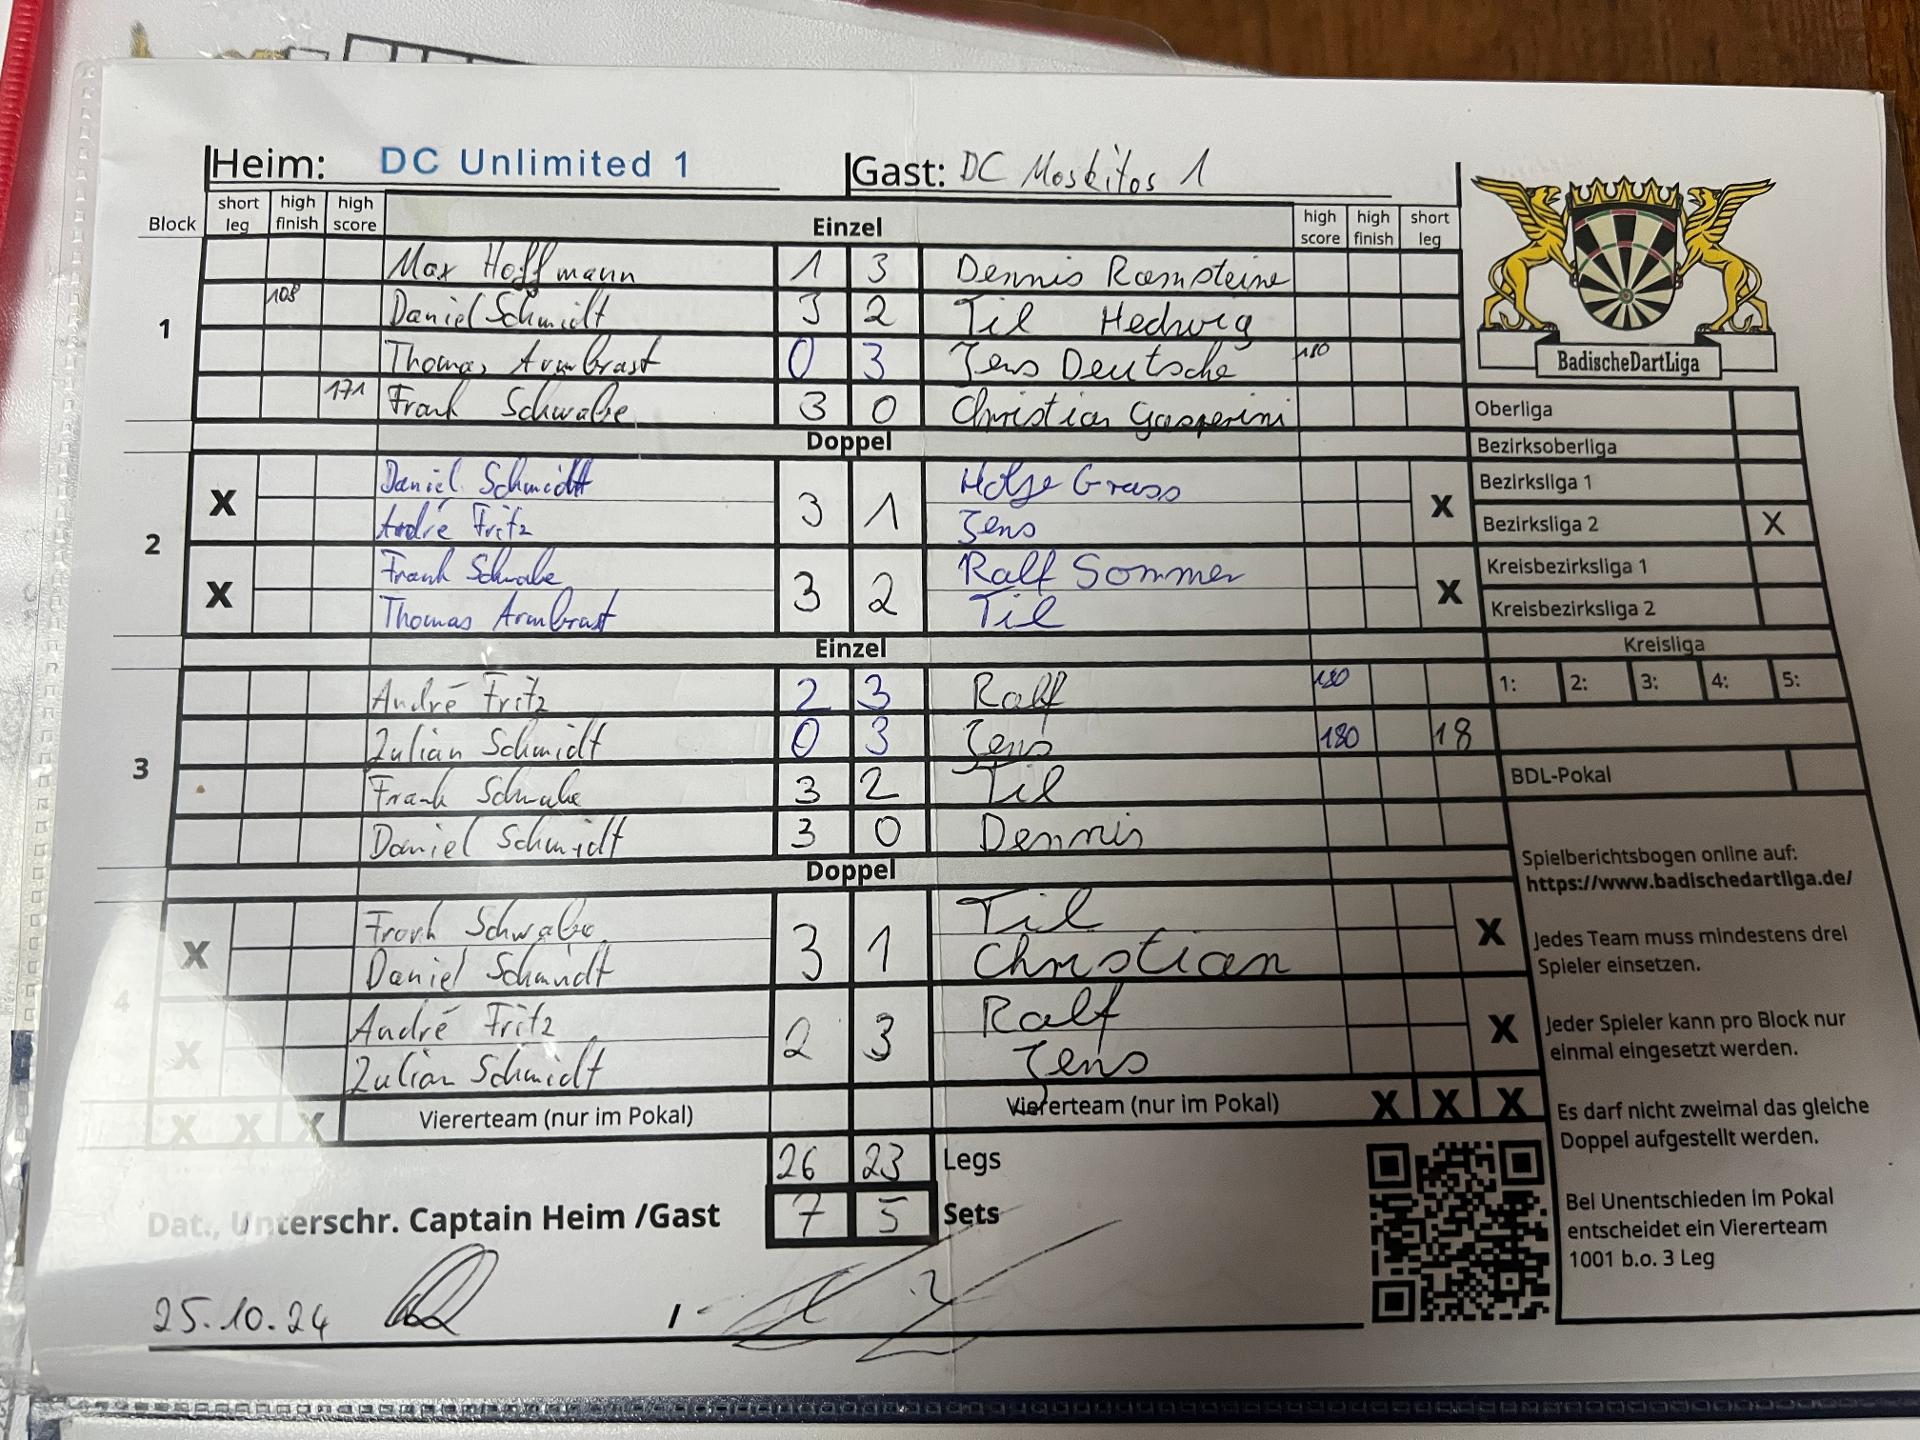 Heim: DC Unlimited 1 Gast: DC Moskitos 1
Block short leg high finish high score Einzel high score high finish short leg
1
Max Hoffmann 1 3 Dennis Ramsteine
108 Daniel Schmidt 3 2 Til Hedwig
Thomas Armbrast 0 3 Jens Deutsche 180
171 Frank Schwabe 3 0 Christian Gasperini
Doppel
2
X Daniel Schmidt 3 1 Holge Grass X
André Fritz Jens
X Frank Schwabe 3 2 Ralf Sommer X
Thomas Armbrast Til
Einzel
3
André Fritz 2 3 Ralf 180
Julian Schmidt 0 3 Jens 180 18
Frank Schwabe 3 2 Til
Daniel Schmidt 3 0 Dennis
Doppel
4
X Frank Schwabe 3 1 Til X
Daniel Schmidt Christian
X André Fritz 2 3 Ralf X
Julian Schmidt Jens
X X X Viererteam (nur im Pokal) Viererteam (nur im Pokal) X X X
26 23 Legs
Dat., Unterschr. Captain Heim /Gast 7 5 Sets
25.10.24 /
BadischeDartLiga
Oberliga
Bezirksoberliga
Bezirksliga 1
Bezirksliga 2 X
Kreisbezirksliga 1
Kreisbezirksliga 2
Kreisliga
1: 2: 3: 4: 5:
BDL-Pokal
Spielberichtsbogen online auf:
https://www.badischedartliga.de/
Jedes Team muss mindestens drei
Spieler einsetzen.
Jeder Spieler kann pro Block nur
einmal eingesetzt werden.
Es darf nicht zweimal das gleiche
Doppel aufgestellt werden.
Bei Unentschieden im Pokal
entscheidet ein Viererteam
1001 b.o. 3 Leg